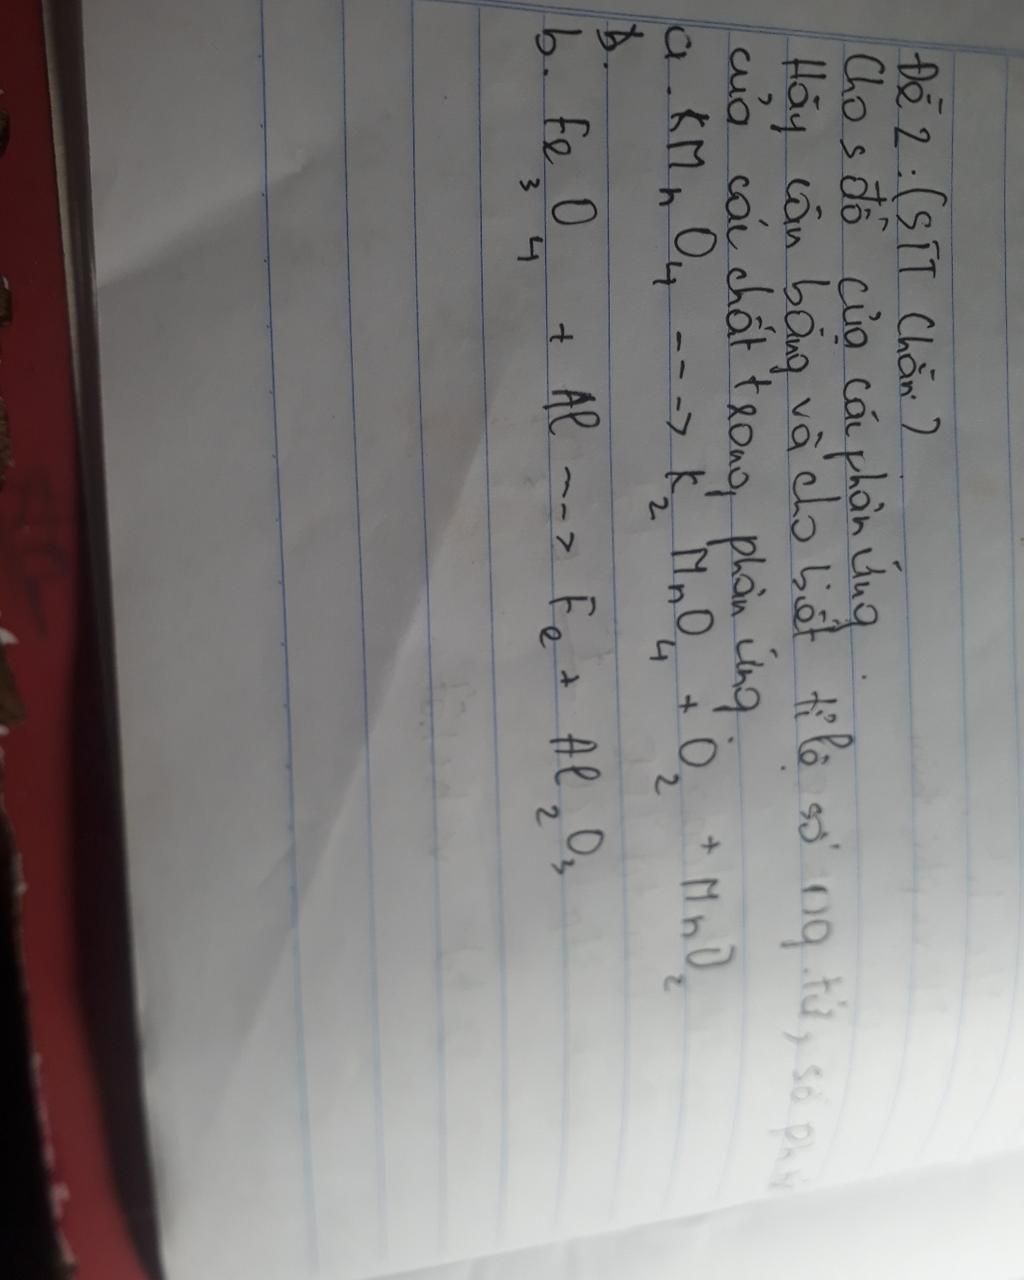 Đề 2: (STT chẵn)
Cho s đồ của các phản ứng.
Hãy cân bằng và cho biết tỉ lệ số ng.tử, số phân
của các chất trong phản ứng
a. KMnO4 --> K2MnO4 + O2 + MnO2
b.
b. Fe3O4 + Al --> Fe + Al2O3